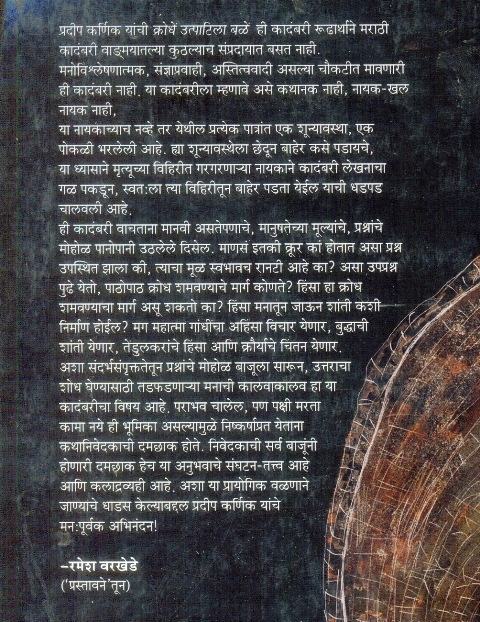 प्रदीप कर्णिक यांची क्रोधें उत्पाटिला बळें ही कादंबरी रूढार्थाने मराठी
कादंबरी वाङ्मयातल्या कुठल्याच संप्रदायात बसत नाही.
मनोविश्लेषणात्मक, संज्ञाप्रवाही, अस्तित्ववादी असल्या चौकटीत मावणारी
ही कादंबरी नाही. या कादंबरीला म्हणावे असे कथानक नाही, नायक-खल
नायक नाही,
या नायकाच्याच नव्हे तर येथील प्रत्येक पात्रांत एक शून्यावस्था, एक
पोकळी भरलेली आहे. ह्या शून्यावस्थेला छेदून बाहेर कसे पडायचे,
या ध्यासाने मृत्यूच्या विहिरीत गरगरणाऱ्या नायकाने कादंबरी लेखनाचा
गळ पकडून, स्वत:ला त्या विहिरीतून बाहेर पडता येईल याची धडपड
चालवली आहे.
ही कादंबरी वाचताना मानवी असतेपणाचे, मानुषतेच्या मूल्यांचे, प्रश्नांचे
मोहोळ पानोपानी उठलेले दिसेल. माणसं इतकी क्रूर कां होतात असा प्रश्न
उपस्थित झाला की, त्याचा मूळ स्वभावच रानटी आहे का? असा उपप्रश्न
पुढे येतो, पाठोपाठ क्रोध शमवण्याचे मार्ग कोणते? हिंसा हा क्रोध
शमवण्याचा मार्ग असू शकतो का? हिंसा मनातून जाऊन शांती कशी
निर्माण होईल? मग महात्मा गांधींचा अहिंसा विचार येणार, बुद्धाची
शांती येणार, तेंडुलकरांचे हिंसा आणि क्रौर्याचे चिंतन येणार.
अशा संदर्भसंपृक्ततेतून प्रश्नांचे मोहोळ बाजूला सारून, उत्तराचा
शोध घेण्यासाठी तडफडणाऱ्या मनाची कालवाकालव हा या
कादंबरीचा विषय आहे. पराभव चालेल, पण पक्षी मरता
कामा नये ही भूमिका असल्यामुळे निष्कर्षाप्रत येताना
कथानिवेदकाची दमछाक होते. निवेदकाची सर्व बाजूंनी
होणारी दमछाक हेच या अनुभवाचे संघटन-तत्त्व आहे
आणि कलाद्रव्यही आहे. अशा या प्रायोगिक वळणाने
जाण्याचे धाडस केल्याबद्दल प्रदीप कर्णिक यांचे
मन:पूर्वक अभिनंदन!
–रमेश वरखेडे
('प्रस्तावने'तून)